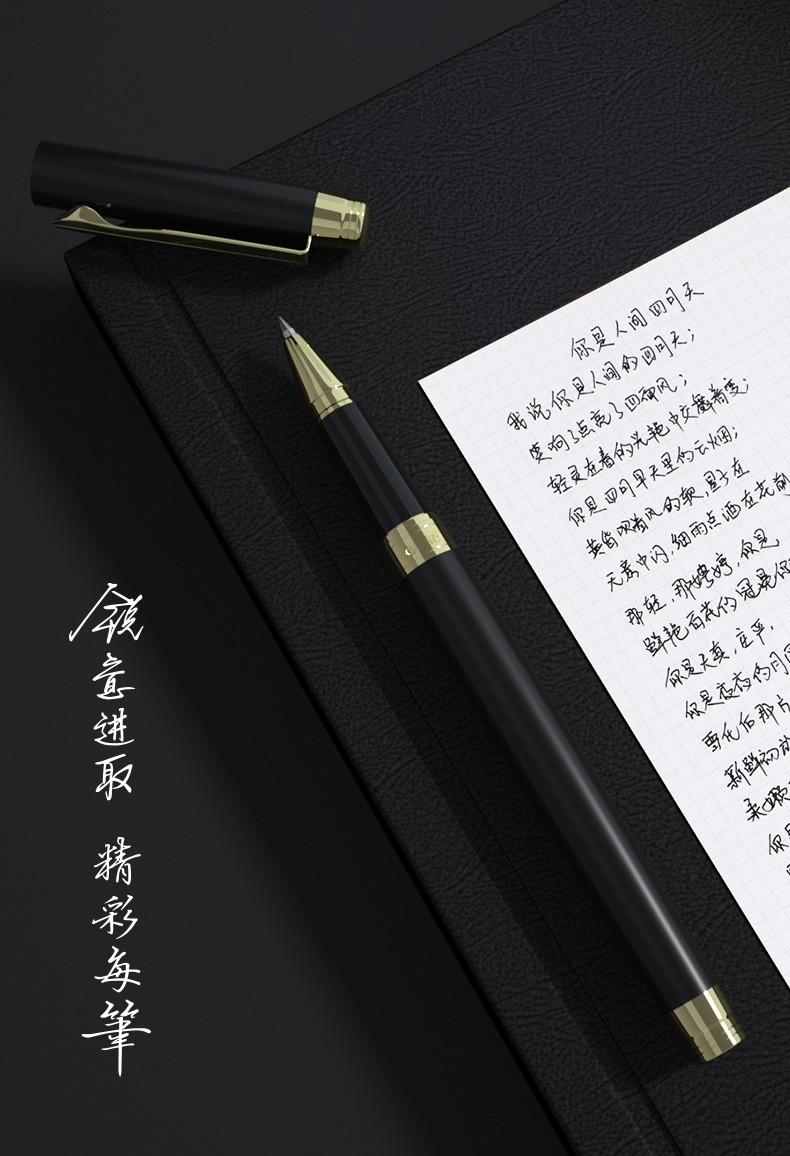 你是人间四月天
我说你是人间的四月天；
笑响了点亮了四面风；
轻灵在春的光艳中交舞着变；
你是四月早天里的云烟；
黄昏吹着风的软，星子在
无意中闪，细雨点洒在花前
那轻，那娉婷，你是，
鲜艳百花的冠冕你
你是天真，庄严，
你是夜夜的月圆
雪化后那片
新鲜初放
柔嫩
你是
锐意进取 精彩每筆